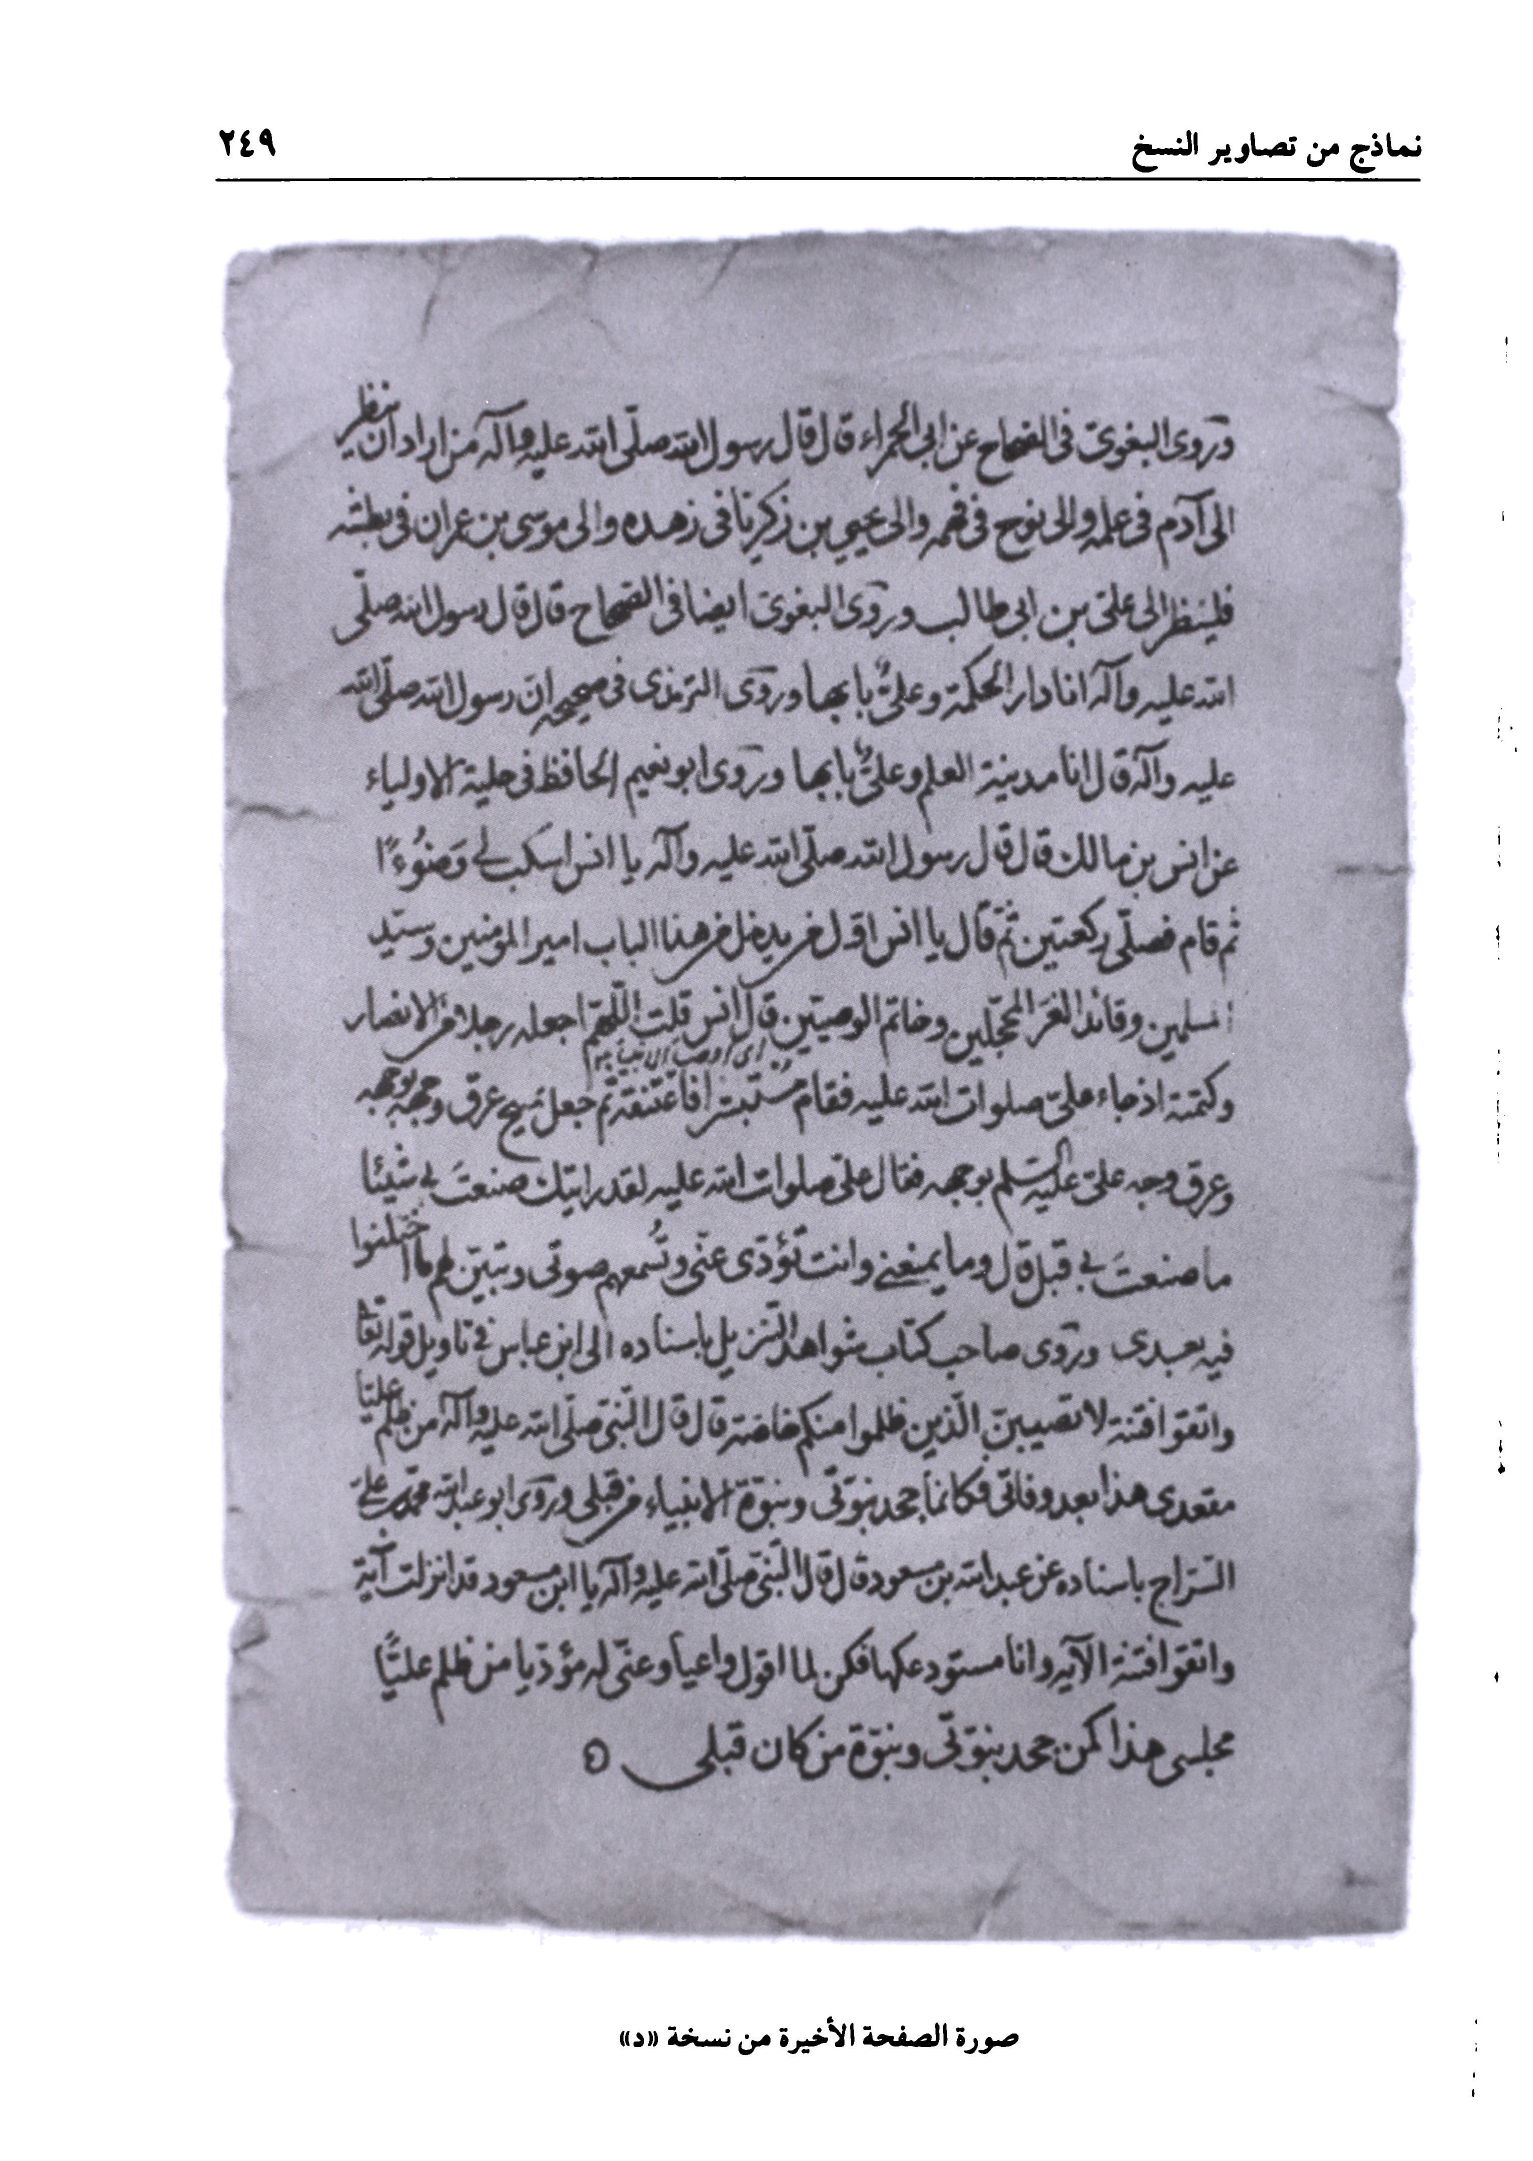 نماذج من تصاوير النسخ ٢٤٩
وروى البغوى فى الصحاح عن ابى الحمراء قال قال رسول الله صلّى الله عليه وآله من اراد ان ينظر
الى آدم فى علمه والى نوح فى فهمه والى يحيى بن زكريا فى زهده والى موسى بن عمران فى بطشه
فلينظر الى علىّ بن ابى طالب وروى البغوى ايضا فى الصحاح قال قال رسول الله صلّى
الله عليه وآله انا دار الحكمة وعلىٌّ بابها وروى الترمذى فى صحيحه انّ رسول الله صلّى الله
عليه وآله قال انا مدينة العلم وعلىٌّ بابها وروى ابو نعيم الحافظ فى حلية الاولياء
عن انس بن مالك قال قال رسول الله صلّى الله عليه وآله يا انس اسكب لى وَضُوءًا
ثم قام فصلّى ركعتين ثمّ قال يا انس اوّل من يدخل من هذا الباب امير المؤمنين وسيّد
المسلمين وقائد الغرّ المحجّلين وخاتم الوصيّين قال انس قلت اللّهمّ اجعله رجلا من الانصار
وكتمته اذ جاء علىّ صلوات الله عليه فقام مستبشرا فاعتنقه ثم جعل يمسح عرق وجهه بوجهه
وعرق وجه علىّ عليه السلم بوجهه فقال علىّ صلوات الله عليه لقد رايتك صنعتَ بى شيئا
ما صنعتَ بى قبل قال وما يمنعنى وانت تؤدّى عنّى وتُسمعهم صوتى وتبيّن لهم ما اختلفوا
فيه بعدى وروى صاحب كتاب شواهد التنزيل باسناده الى ابن عباس فى تاويل قوله تعالى
واتقوا فتنة لا تصيبنّ الّذين ظلموا منكم خاصّة قال قال النّبىّ صلّى الله عليه وآله من ظلم عليّا
مقعدى هذا بعد وفاتى فكانما جحد نبوّتى ونبوّة الانبياء من قبلى وروى ابو عبد الله محمّد بن على
السّراج باسناده عن عبد الله بن مسعود قال قال النّبىّ صلّى الله عليه وآله يا ابن مسعود قد انزلت آية
واتقوا فتنة الآيه وانا مستودعكها فكن لما اقول واعيا وعنّى له مؤدّيا من ظلم عليًّا
مجلسى هذا كمن جحد نبوّتى ونبوّة من كان قبلى
صورة الصفحة الأخيرة من نسخة «د»